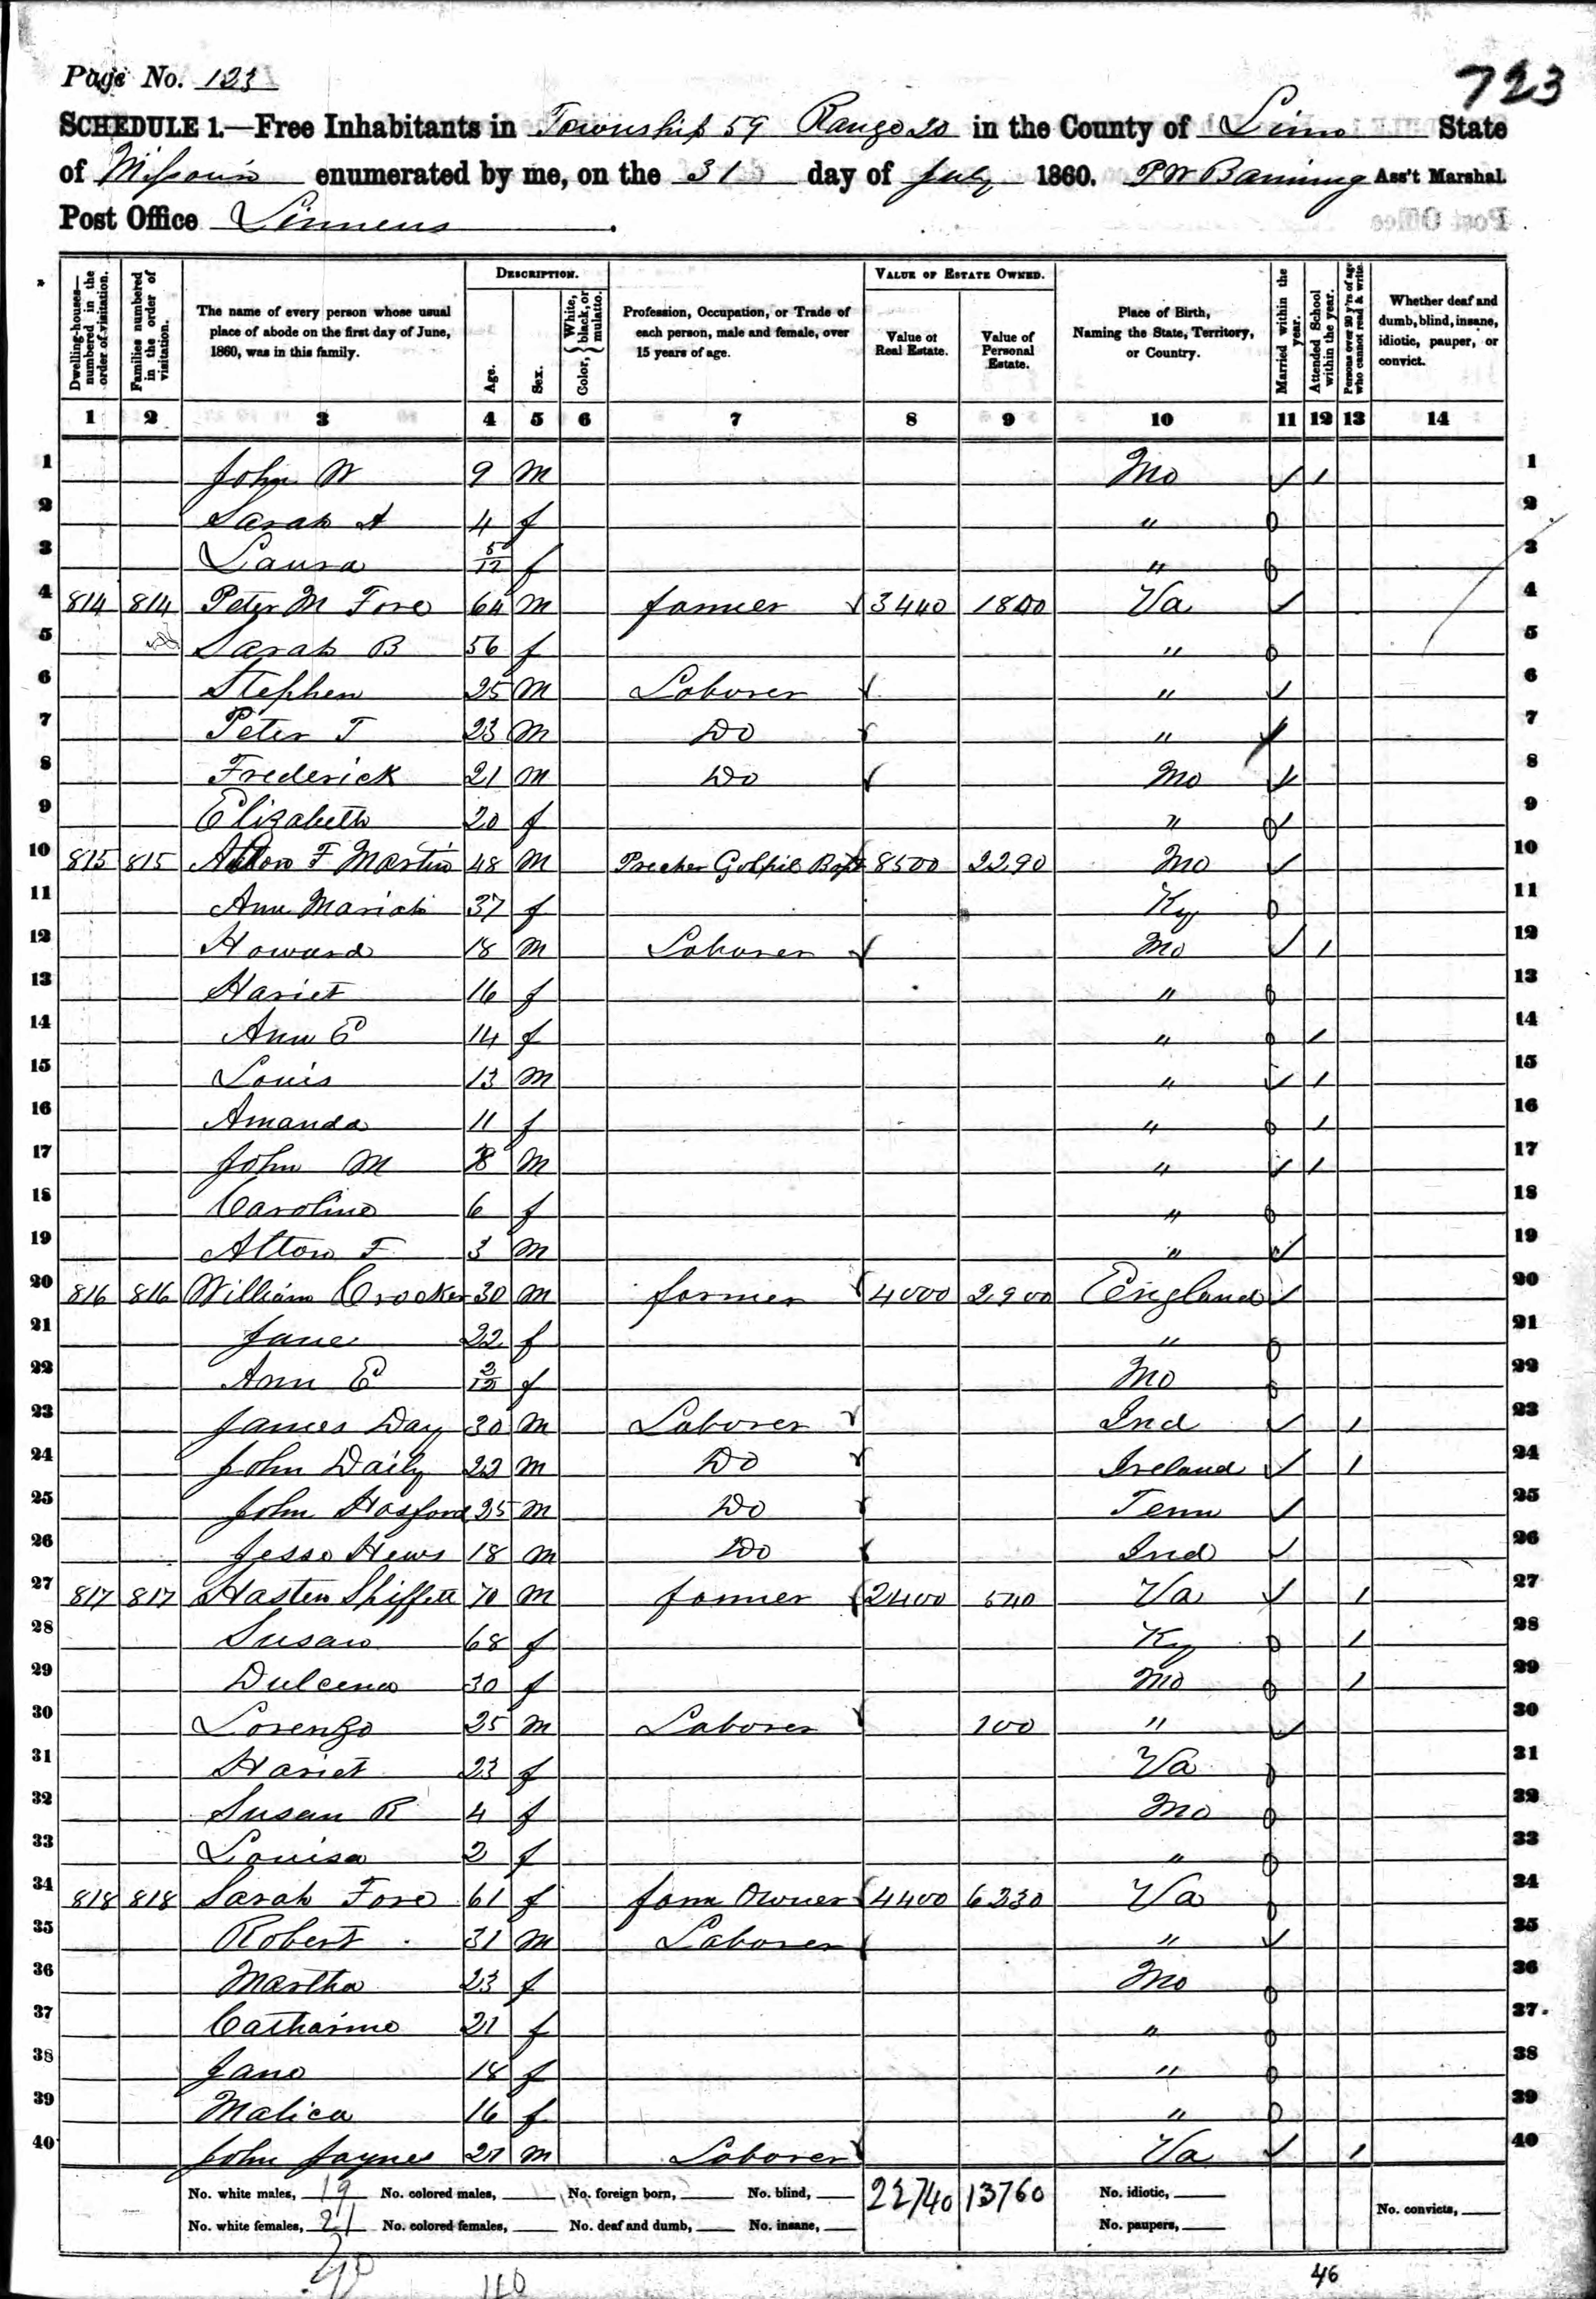 Page No. 123
723
SCHEDULE 1.—Free Inhabitants in Township 59 Range 20 in the County of Linn State
of Missouri enumerated by me, on the 31 day of July 1860. P W Banning Ass't Marshal.
Post Office Linneus
Dwelling-houses—numbered in the order of visitation.
Families numbered in the order of visitation.
The name of every person whose usual place of abode on the first day of June, 1860, was in this family.
DESCRIPTION.
Age.
Sex.
Color, { White, black, or mulatto.
Profession, Occupation, or Trade of each person, male and female, over 15 years of age.
VALUE OF ESTATE OWNED.
Value of Real Estate.
Value of Personal Estate.
Place of Birth, Naming the State, Territory, or Country.
Married within the year.
Attended School within the year.
Persons over 20 y'rs of age who cannot read & write.
Whether deaf and dumb, blind, insane, idiotic, pauper, or convict.
1 2 3 4 5 6 7 8 9 10 11 12 13 14
1 John W 9 m Mo / 1
2 Sarah A 4 f " 2
3 Laura 5/12 f " 3
4 814 814 Peter M Fore 64 m farmer 3440 1800 Va 4
5 Sarah B 56 f " 5
6 Stephen 25 m Laborer " 6
7 Peter T 23 m Do " 7
8 Frederick 21 m Do Mo 8
9 Elizabeth 20 f " 9
10 815 815 Alton F Martin 48 m Precher Gospil Bapt 8500 2290 Mo 10
11 Ann Mariah 37 f Ky 11
12 Howard 18 m Laborer Mo / 12
13 Hariet 16 f " 13
14 Ann E 14 f " / 14
15 Louis 13 m " / 15
16 Amanda 11 f " / 16
17 John M 8 m " / 17
18 Caroline 6 f " 18
19 Alton F 3 m " 19
20 816 816 William Crocker 30 m farmer 4000 2900 England 20
21 Jane 22 f " 21
22 Ann E 2/12 f Mo 22
23 James Day 30 m Laborer Ind / 23
24 John Daily 22 m Do Ireland / 24
25 John Hosford 25 m Do Tenn 25
26 Jesse Hews 18 m Do Ind 26
27 817 817 Hasten Shifflett 70 m farmer 2400 540 Va / 27
28 Susan 68 f Ky / 28
29 Dulcena 30 f Mo / 29
30 Lorenzo 25 m Laborer 100 " 30
31 Hariet 23 f Va 31
32 Susan R 4 f Mo 32
33 Louisa 2 f " 33
34 818 818 Sarah Fore 61 f farm Owner 4400 6230 Va 34
35 Robert 31 m Laborer " 35
36 Martha 23 f Mo 36
37 Catharine 21 f " 37
38 Jane 18 f " 38
39 Malica 16 f " 39
40 John Jaynes 27 m Laborer Va / 40
No. white males, 19 No. colored males, No. foreign born, No. blind, 22740 13760 No. idiotic,
No. white females, 21 No. colored females, No. deaf and dumb, No. insane, No. paupers, No. convicts,
40 40 46